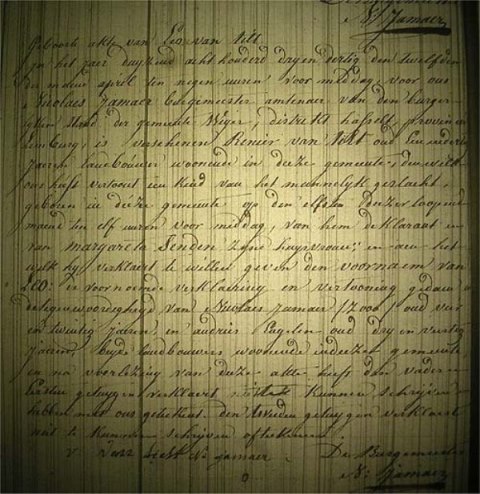 De Burgemeester
N: Jamaer
Geboorte akt van Leo van tilt
In het jaer duyzend acht honderd dry en dertig den twelfden
der maend april ten negen uuren voor middag, voor ons
Nicolaes Jamaer burgemeester amtenaer van den burger-
lyken stand der gemeente Wyer, distrikt hasselt, provincie
Limburg, is verschenen Renier van tilt oud
jaeren landbouwer woonende in deeze gemeente, den welken
ons heeft vertoont een kind van het mannelyk geslacht,
geboren in deeze gemeente op den elfsten deezer loopende
maend ten elf uuren voor middag, van hem deklarant en
van margareta Senden zyne huysvrouw; en aen het
welk hy verklaert te willen geven den voornaem van
Leo: de voornoemde verklaering en vertooning gedaen in
de tegenwoordigheyd van Nicolaes Jamaer zoon oud vier
en twentig jaeren en andries oud dry en veertig
jaeren, beyde landbouwers woonende in deeze gemeente,
en na voorlezing van deze akte heeft den vader en
getuygen verklaert niet te kunnen schryven
hebben met ons geteekent. den tweeden getuygen verklaert
niet te kunnen schryven of teekenen.
N: jamaer De Burgemeester
N: Jamaer